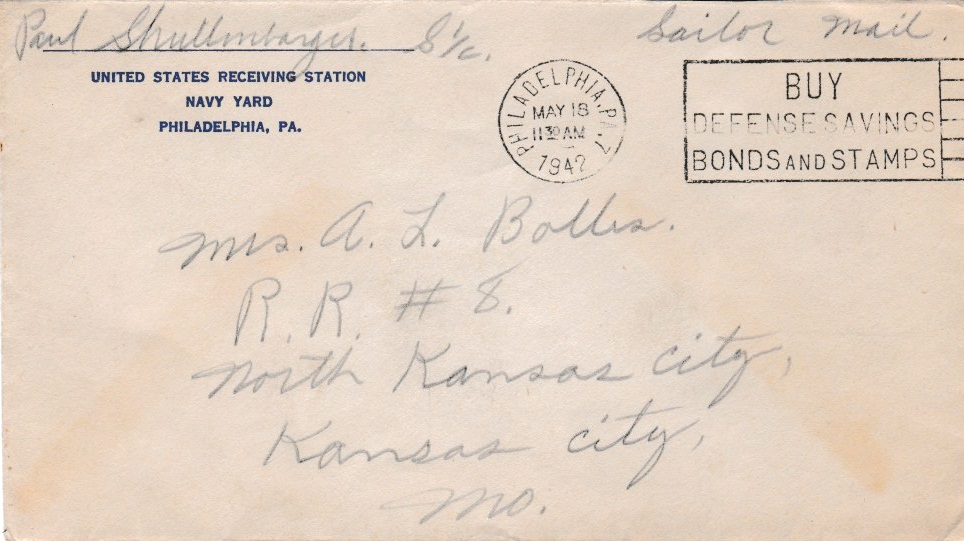 Paul Shullenbarger. S 1/c. Sailor Mail.
UNITED STATES RECEIVING STATION
NAVY YARD
PHILADELPHIA, PA.
PHILADELPHIA, PA. 7
MAY 18
11 30 AM
1942
BUY
DEFENSE SAVINGS
BONDS AND STAMPS
Mrs. A. L. Bolles.
R. R. # 8.
North Kansas City,
Kansas City,
Mo.